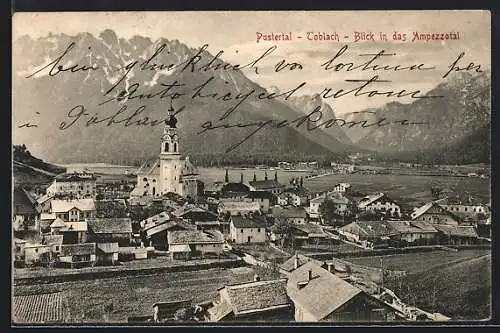 Pustertal - Toblach - Blick in das Ampezzotal
Bin glücklich von Cortina per
Auto bicycel retour
in Toblach angekommen